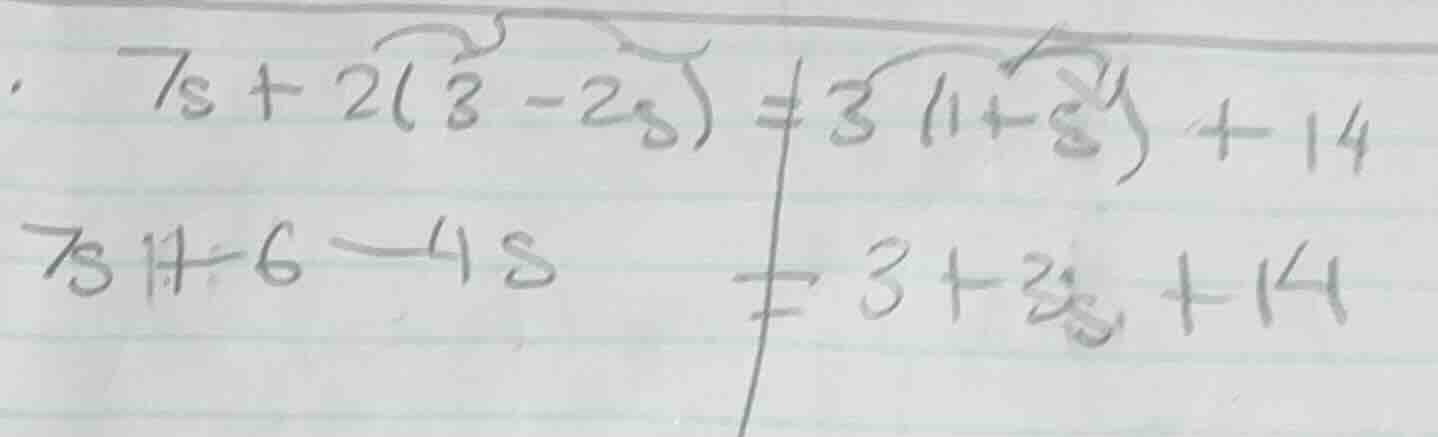 7s + 2(3 - 2s) = 3(1 + s) + 14
7s + 6 - 4s = 3 + 3s + 14